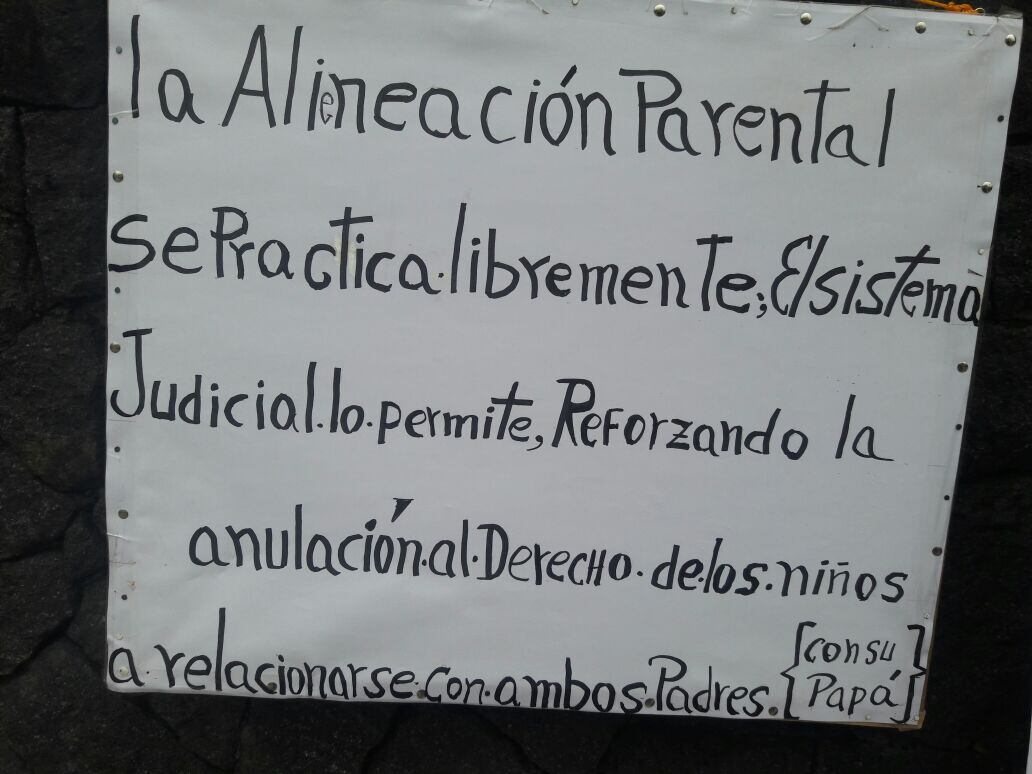 la Alieneación Parental
se Practica.libremente; El sistema
Judicial.lo.permite, Reforzando la
anulación.al.Derecho.de.los.niños
a.relacionarse.con.ambos.Padres. [con su
Papá]